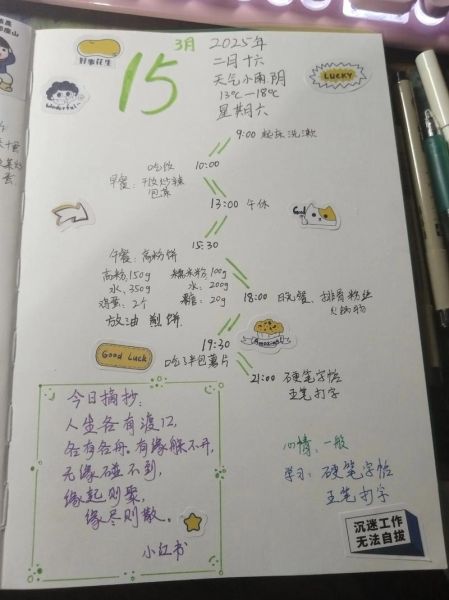 好事花生
15
3月
2025年
二月十六
天气小雨阴
13℃—18℃
星期六
LUCKY
Wonderful
9:00 起床洗漱
吃饭 10:00
早餐:干饭炒辣
包菜
13:00 午休
Good
15:30
午餐:高粉饼
高粉150g 糯米粉100g
水:350g 水:200g
鸡蛋:2个 20g
放油 煎饼
18:00 晚餐、排骨粉丝
Amazing
19:30
Good Luck
吃了半包薯片
21:00 硬笔字帖
五笔打字
今日摘抄:
人生各有渡口,
各有各舟。有缘躲不开,
无缘碰不到,
缘起则聚,
缘尽则散。
小红书
心情:一般
学习:硬笔字帖
五笔打字
沉迷工作
无法自拔